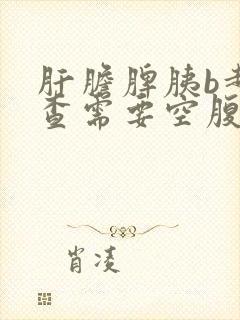 肝胆脾胰b
查需要空腹
肖凌